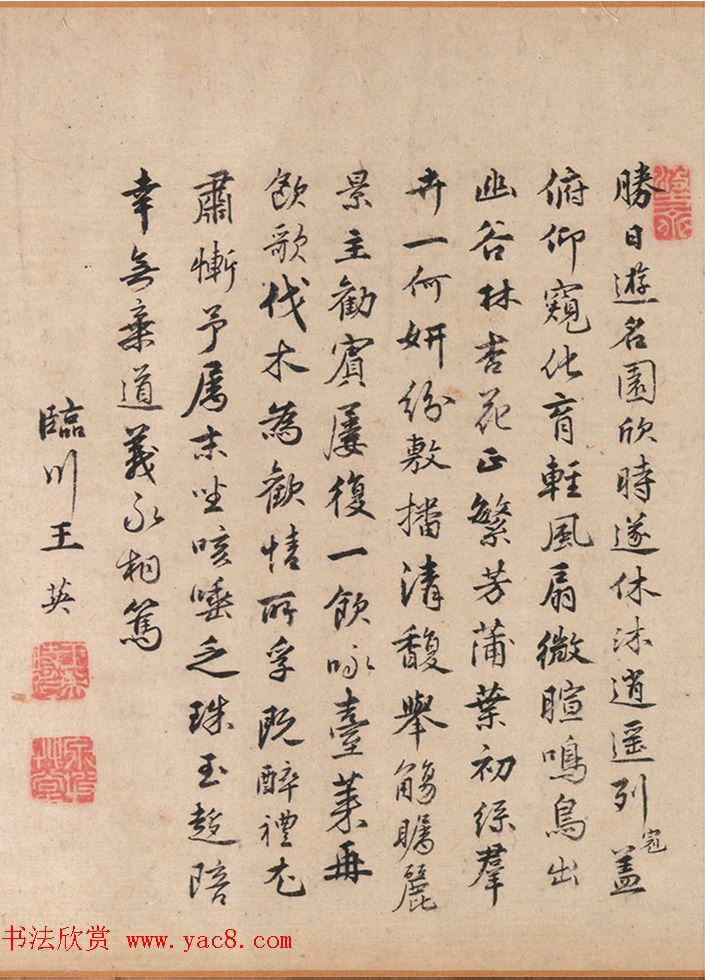 勝日遊名園欣時遂休沐逍遥列冠盖
俯仰窺化育輕風扇微暄鳴鳥出
幽谷林杏花正繁芳蒲葉初綠羣
卉一何妍紛敷播清馥舉觴矚麗
景主勸賓屢復一飲咏臺萊再
飲歌伐木為歡情所孚既醉禮尤
肅慚予属末坐咳唾乏珠玉趍陪
幸無棄道義永相篤
臨川王英
书法欣赏 www.yac8.com